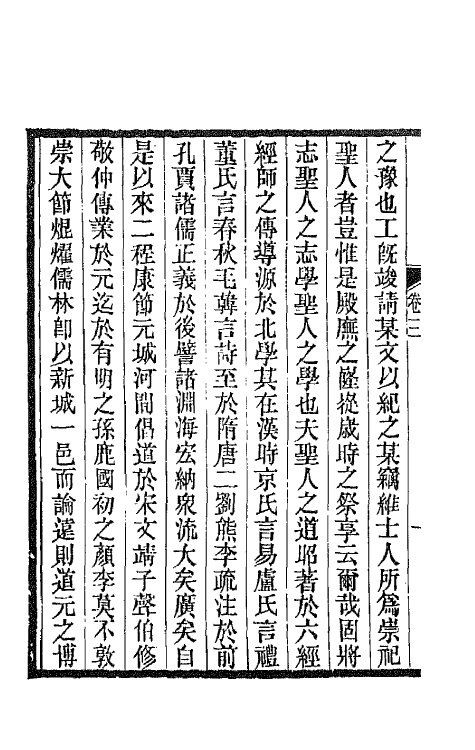 之豫也工既竣請某文以紀之某竊維士人所爲崇祀
聖人者豈惟是殿廡之隆從歲時之祭享云爾哉固將
志聖人之志學聖人之學也夫聖人之道昭著於六經
經師之傳導源於北學其在漢時京氏言易盧氏言禮
董氏言春秋毛韓言詩至於隋唐二劉熊李疏注於前
孔賈諸儒正義於後譬諸淵海宏納衆流大矣廣矣自
是以來二程康節元城河間倡道於宋文靖子聲伯修
敬仲傳業於元迄於有明之孫鹿國初之顏李莫不敦
崇大節焜燿儒林卽以新城一邑而論遠則道元之博
卷三